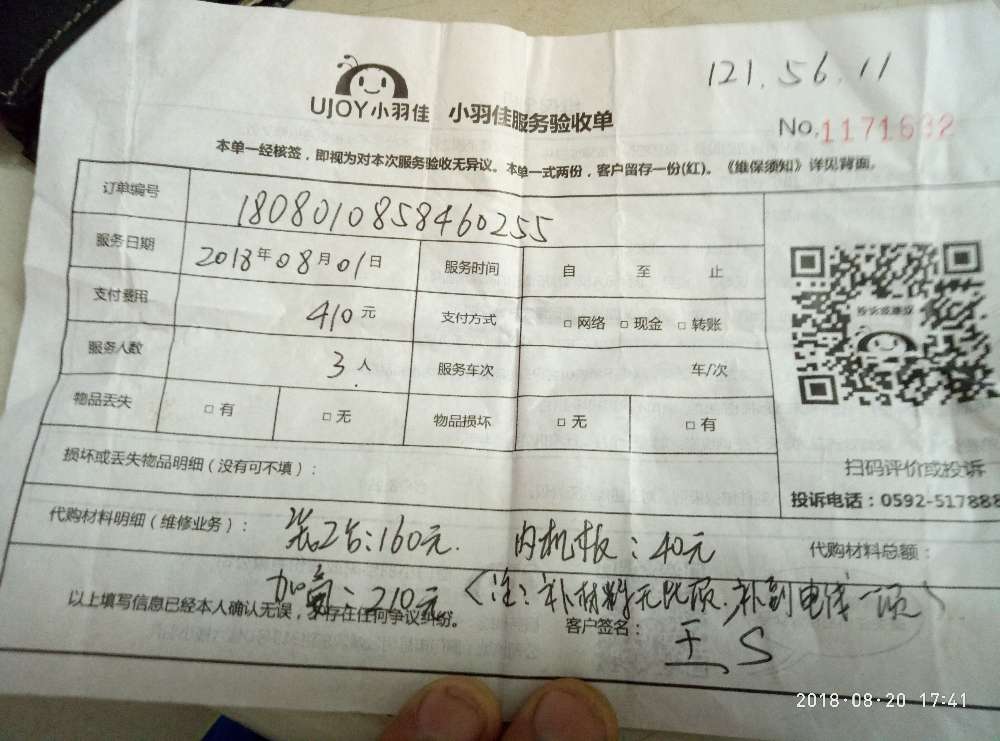 121.56.11
UJOY小羽佳 小羽佳服务验收单
No.1171632
本单一经核签，即视为对本次服务验收无异议。本单一式两份，客户留存一份(红)。《维保须知》详见背面。
订单编号 1808010858460255
服务日期 2018年08月01日 服务时间 自 至 止
支付费用 410元 支付方式 □网络 □现金 □转账
服务人数 3人 服务车次 车/次
物品丢失 □有 □无 物品损坏 □无 □有
扫码评价或投诉
损坏或丢失物品明细（没有可不填）：
投诉电话：0592-517888
代购材料明细（维修业务）： 装2台：160元. 内机板：40元 代购材料总额：
加氟：210元（注：补材料无此项.补到电线一项）
以上填写信息已经本人确认无误，存在任何争议纠纷。 客户签名： 王S
2018-08-20 17:41